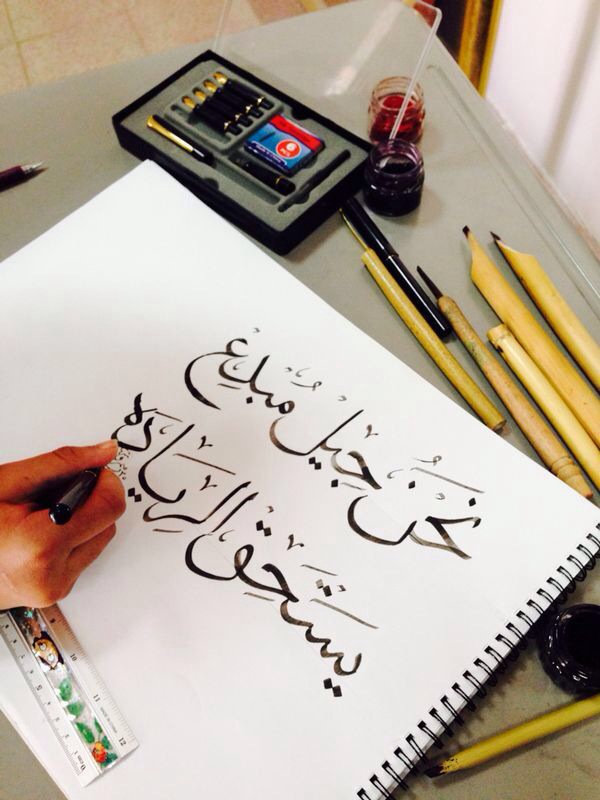 نحن جيل مبدع
يستحق الرياده
10 11 12